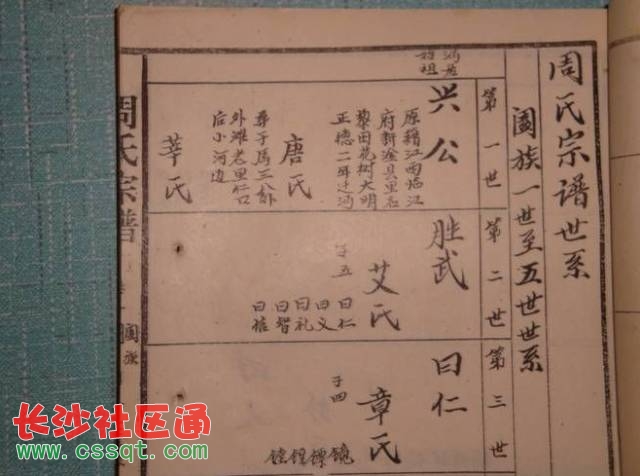 周氏宗谱世系
阖族一世至五世世系
第一世
兴公
原籍江西临江
府新淦县里石
黎田花树大明
正德二年迁沔
唐氏
葬于马三公𣲗
外滩老里仁口
后小河边
莘氏
第二世
胜武
艾氏
子五
曰仁
曰义
曰礼
曰智
曰信
第三世
曰仁
章氏
子四
周氏宗谱
阖族
长沙社区通
www.cssqt.com